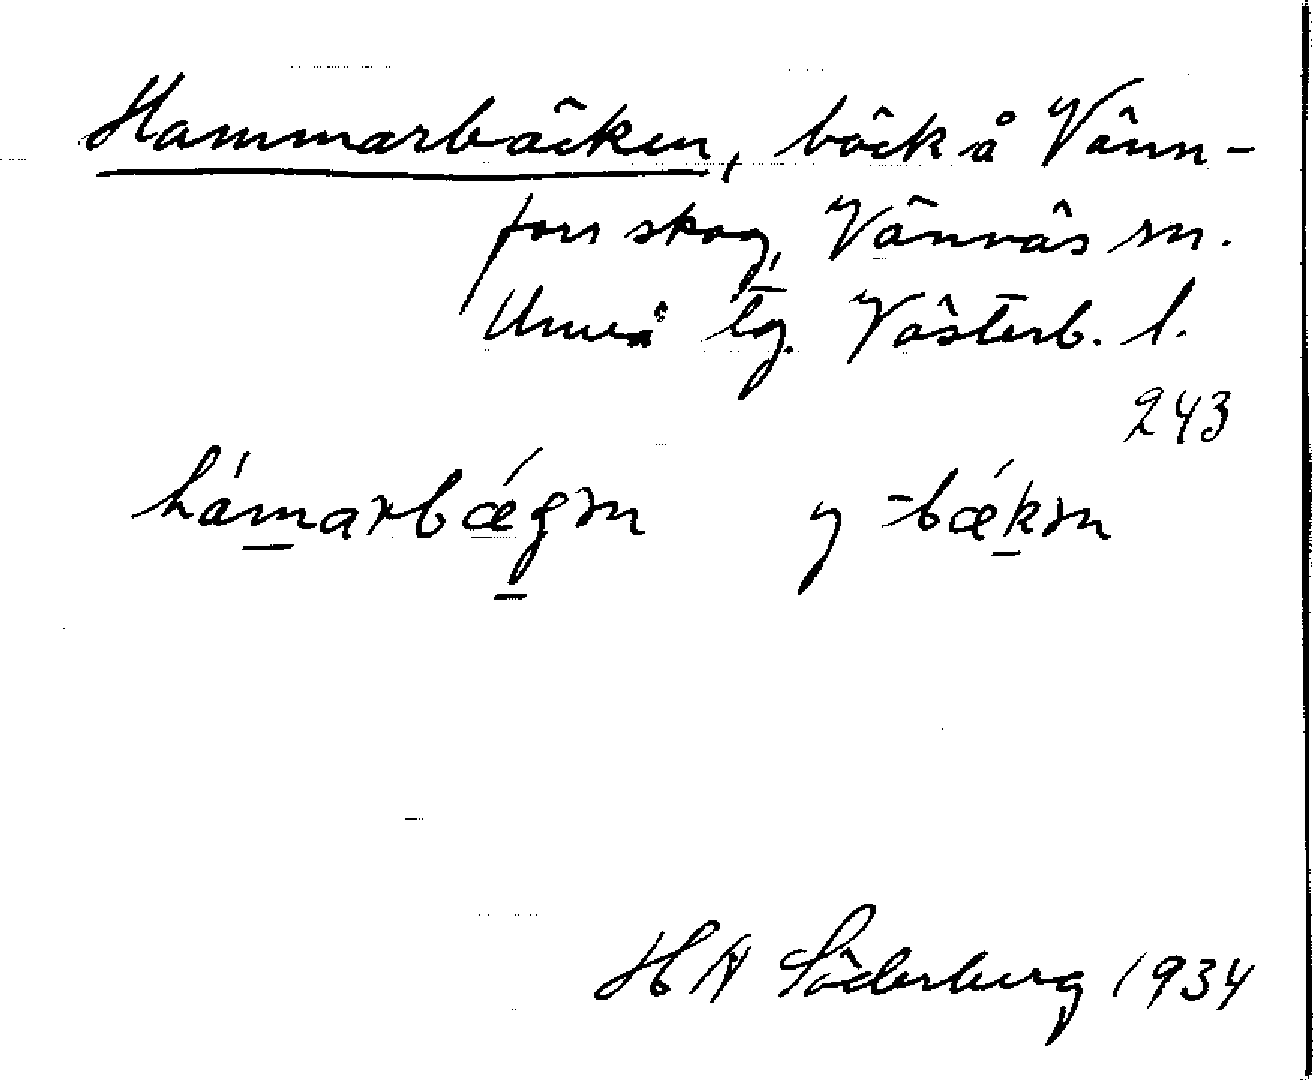 Hammarbäcken, bäck å Vänn-
fors skog, Vännäs sn.
Umeå tg. Västerb. l.
243
hámarbǽgm̥ y -bǽkm̥
H A Söderberg 1934